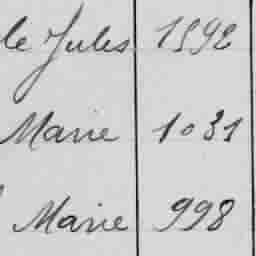 le Jules 1592
Marie 1031
Marie 998